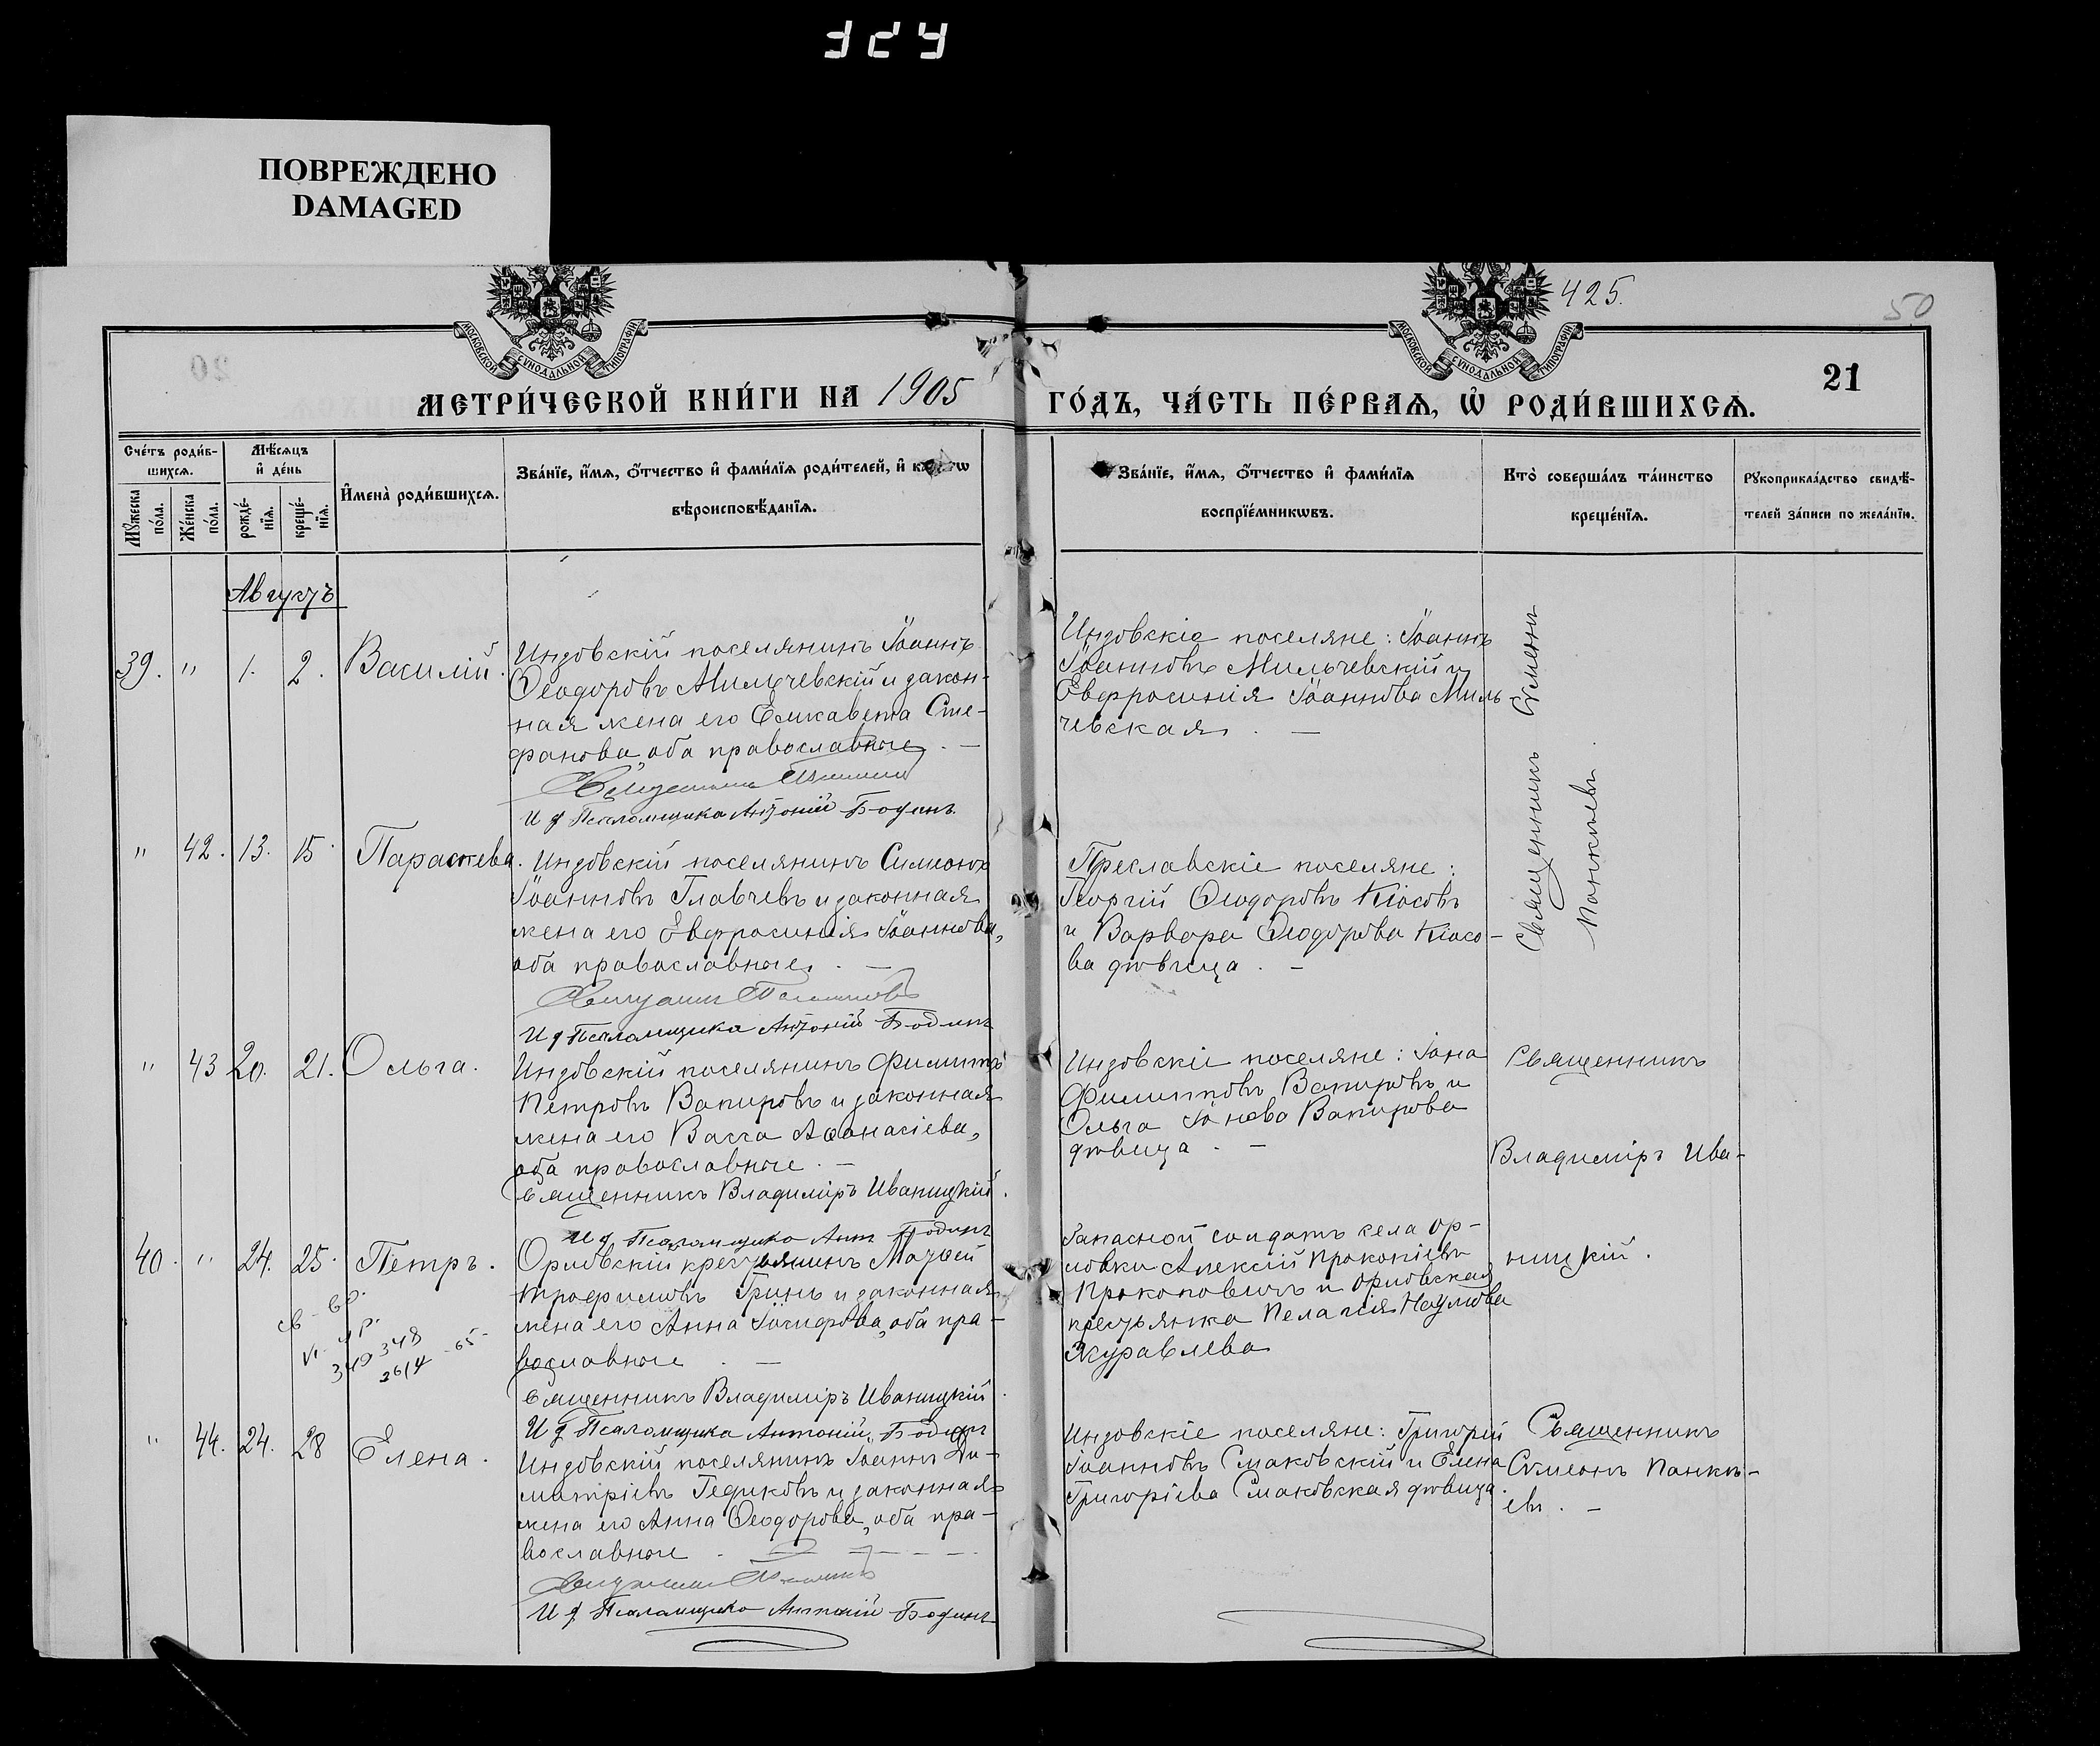 ПОВРЕЖДЕНО
DAMAGED
МОСКОВСКОЙ СѴНОДАЛЬНОЙ ТИПОГРАФІИ
МОСКОВСКОЙ СѴНОДАЛЬНОЙ ТИПОГРАФІИ
425.
50
20
21
МЕТРИ́ЧЕСКОЙ КНИ́ГИ НА 1905 ГО́ДЪ, ЧА́СТЬ ПЕ́РВАѦ, Ѡ҆ РОДИ́ВШИХСѦ.
Сче́тъ роди́в-
шихсѧ.
Мꙋжеска по́ла.
Же́нска по́ла.
Мѣ́сѧцъ
и҆ де́нь
рожде́-
нїѧ.
креще́-
нїѧ.
И҆мена̀ роди́вшихсѧ.
Зва́нїе, и҆́мѧ, ѻ҆́тчество и҆ фами́лїѧ роди́телей, и҆
вѣроисповѣ́данїѧ.
Зва́нїе, и҆́мѧ, ѻ҆́тчество и҆ фами́лїѧ
воспрїе́мникѡвъ.
Кто̀ соверша́лъ та́инство
креще́нїѧ.
Рꙋкоприкла́дство свидѣ́-
телей за́писи по жела́нїю.
Августъ
39. " 1. 2. Василій.
Индовскій поселянинъ Іоаннъ
Ѳеодоровъ Мильчевскій и закон-
ная жена его Елисавета Сте-
фанова, оба православные. —
И д Псаломщика Антоній Бодинъ.
Индовскіе поселяне: Іоаннъ
Іоанновъ Мильчевскій и
Евфросинія Іоаннова Миль
чевская. —
Священникъ Сѵмеонъ
Панкѣевъ.
" 42. 13. 15. Параскева.
Индовскій поселянинъ Симеонъ
Іоанновъ Главчевъ и законная
жена его Евфросинія Іоаннова,
оба православные. —
И д Псаломщика Антоній Бодинъ
Преславскіе поселяне:
Георгій Ѳеодоровъ Кіосовъ
и Варвара Ѳеодорова Кіосо-
ва дѣвица. —
" 43 20. 21. Ольга.
Индовскій поселянинъ Филиппъ
Петровъ Вапировъ и законная
жена его Васса Аѳанасіева,
оба православные. —
Священникъ Владиміръ Иваницкій.
И д Псаломщика Ант Бодинъ
Индовскіе поселяне: Іона
Филипповъ Вапировъ и
Ольга Іонова Вапирова
дѣвица. —
Священникъ
Владиміръ Ива-
ницкій.
40. " 24. 25. Петръ.
Орловскій крестьянинъ Матѳей
Трофимовъ Гринь и законная
жена его Анна Іосифова, оба пра-
вославные. —
Священникъ Владиміръ Иваницкій.
И д Псаломщика Антоній Бодинъ
Запасной солдатъ села Ор-
ловки Алексій Прокопіевъ
Прокоповичъ и Орловская
крестьянка Пелагія Наумова
Журавлева
349 348
2614 - 65 -
" 44. 24. 28 Елена.
Индовскій поселянинъ Іоаннъ Ди-
митріевъ Гедиковъ и законная
жена его Анна Ѳеодорова, оба пра-
вославные. —
И д Псаломщика Антоній Бодинъ
Индовскіе поселяне: Григорій
Іоанновъ Смаковскій и Елена
Григоріева Смаковская дѣвица.
Священникъ
Сѵмеонъ Панкѣ-
евъ. —